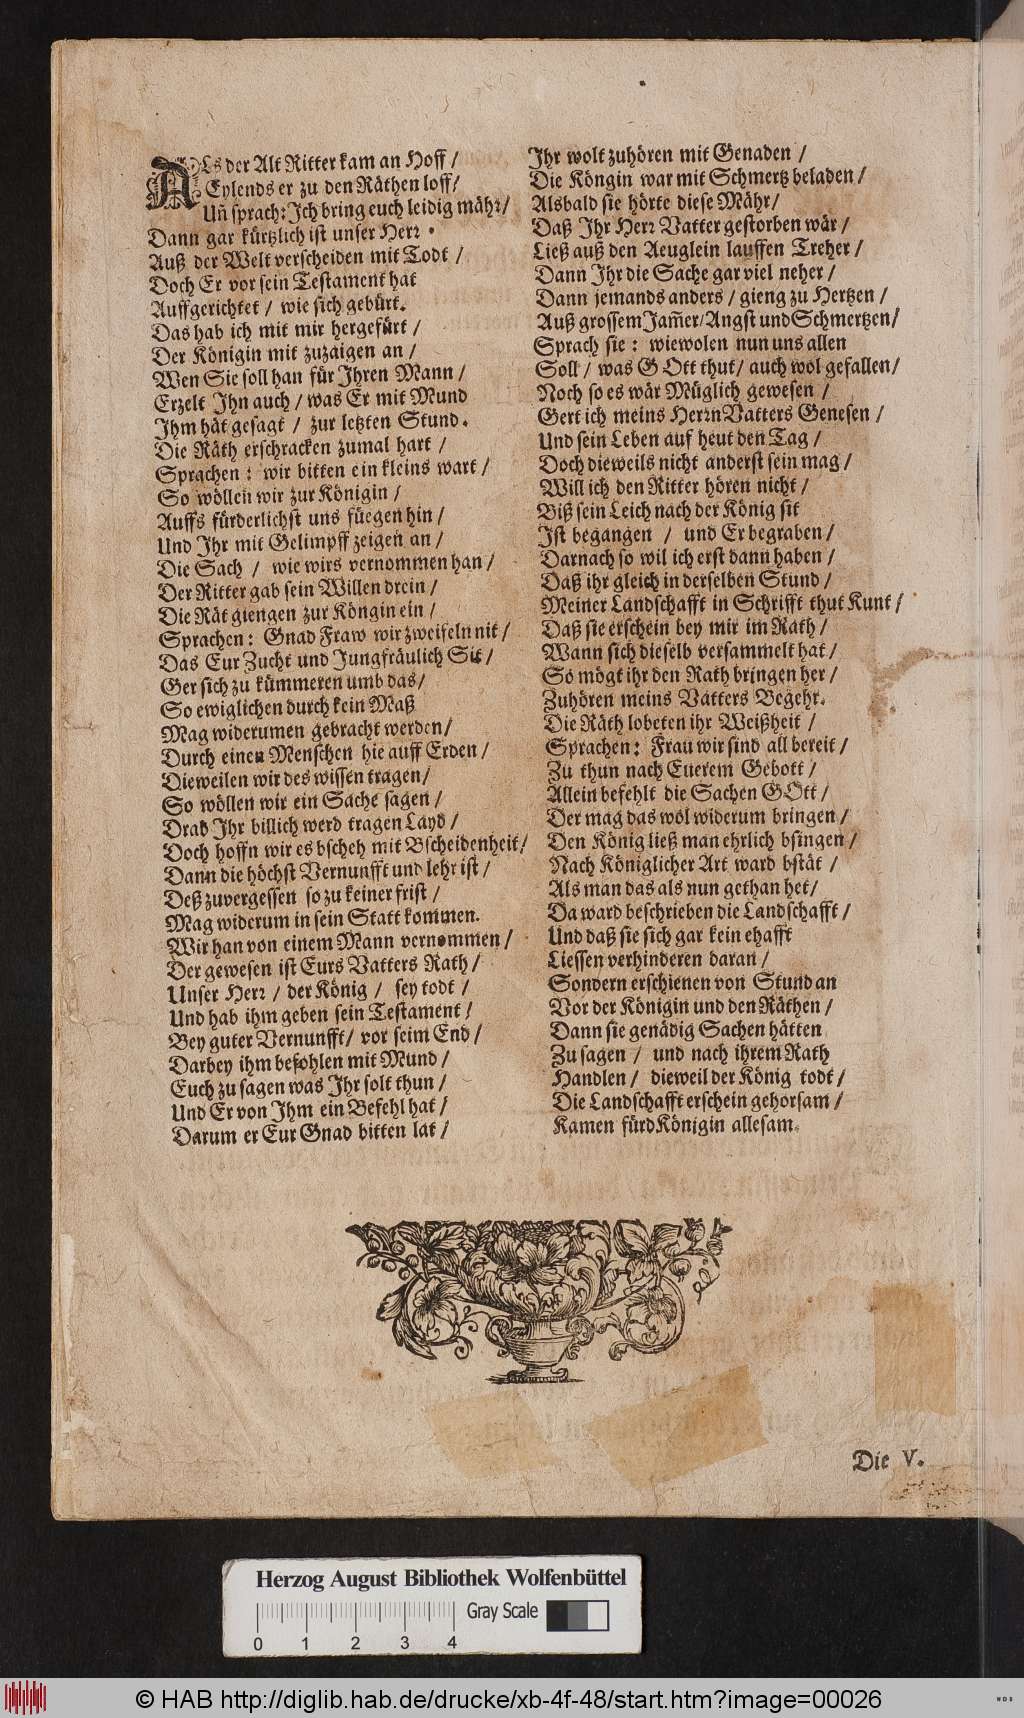 ALs der Alt Ritter kam an Hoff /
Eylends er zu den Räthen loff /
Uñ sprach: Ich bring euch leidig mähr /
Dann gar kürtzlich ist unser Herr.
Auß der Welt verscheiden mit Todt /
Doch Er vor sein Testament hat
Auffgerichtet / wie sich gebürt.
Das hab ich mit mir hergefürt /
Der Königin mit zuzaigen an /
Wen Sie soll han für Ihren Mann /
Erzelt Ihn auch / was Er mit Mund
Ihm hät gesagt / zur letzten Stund.
Die Räth erschracken zumal hart /
Sprachen: wir bitten ein kleins wart /
So wöllen wir zur Königin /
Auffs fürderlichst uns füegen hin /
Und Ihr mit Gelimpff zeigen an /
Die Sach / wie wirs vernommen han /
Der Ritter gab sein Willen drein /
Die Rät giengen zur Köngin ein /
Sprachen: Gnad Fraw wir zweifeln nit /
Das Eur Zucht und Jungfräulich Sit /
Ger sich zu kümmeren umb das /
So ewiglichen durch kein Maß
Mag widerumen gebracht werden /
Durch einen Menschen hie auff Erden /
Dieweilen wir des wissen tragen /
So wöllen wir ein Sache sagen /
Drab Ihr billich werd tragen Layd /
Doch hoffn wir es bscheh mit Bscheidenheit /
Dann die höchst Vernunfft und lehr ist /
Deß zuvergessen so zu keiner frist /
Mag widerum in sein Statt kommen.
Wir han von einem Mann vernommen /
Der gewesen ist Eurs Vatters Rath /
Unser Herr / der König / sey todt /
Und hab ihm geben sein Testament /
Bey guter Vernunfft / vor seim End /
Darbey ihm befohlen mit Mund /
Euch zu sagen was Ihr solt thun /
Und Er von Ihm ein Befehl hat /
Darum er Eur Gnad bitten lat /
Ihr wolt zuhören mit Genaden /
Die Köngin war mit Schmertz beladen /
Alsbald sie hörte diese Mähr /
Daß Ihr Herr Vatter gestorben wär /
Ließ auß den Aeuglein lauffen Treher /
Dann Ihr die Sache gar viel neher /
Dann jemands anders / gieng zu Hertzen /
Auß grossem Jam̃er / Angst und Schmertzen /
Sprach sie: wiewolen nun uns allen
Soll / was GOtt thut / auch wol gefallen /
Noch so es wär Müglich gewesen /
Gert ich meins Herrn Vatters Genesen /
Und sein Leben auf heut den Tag /
Doch dieweils nicht anderst sein mag /
Will ich den Ritter hören nicht /
Biß sein Leich nach der König sit
Ist begangen / und Er begraben /
Darnach so wil ich erst dann haben /
Daß ihr gleich in derselben Stund /
Meiner Landschafft in Schrifft thut Kunt /
Daß sie erschein bey mir im Rath /
Wann sich dieselb versammelt hat /
So mögt ihr den Rath bringen her /
Zuhören meins Vatters Begehr.
Die Räth lobeten ihr Weißheit /
Sprachen: Frau wir sind all bereit /
Zu thun nach Euerem Gebott /
Allein befehlt die Sachen GOtt /
Der mag das wol widerum bringen /
Den König ließ man ehrlich bsingen /
Nach Königlicher Art ward bstät /
Als man das als nun gethan het /
Da ward beschrieben die Landschafft /
Und daß sie sich gar kein ehafft
Liessen verhinderen daran /
Sondern erschienen von Stund an
Vor der Königin und den Räthen /
Dann sie genädig Sachen hätten
Zu sagen / und nach ihrem Rath
Handlen / dieweil der König todt /
Die Landschafft erschein gehorsam /
Kamen fürd Königin allesam.
Die V.
Herzog August Bibliothek Wolfenbüttel
Gray Scale
0 1 2 3 4
© HAB http://diglib.hab.de/drucke/xb-4f-48/start.htm?image=00026